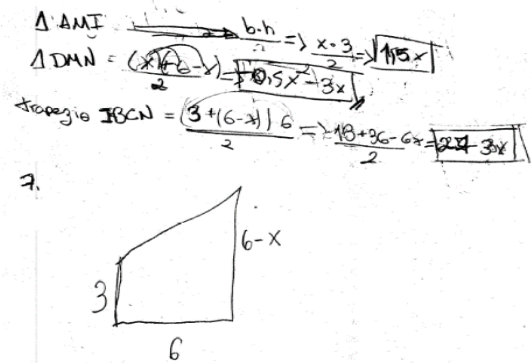 Δ AMI b.h => x.3/2 => 1,5x
Δ DMN = (x)(6-x)/2 = 0,5x² - 3x
trapezio IBCN = (3+(6-x)) 6/2 => 18+36-6x/2 = 27-3x
7.
6-x
3
6